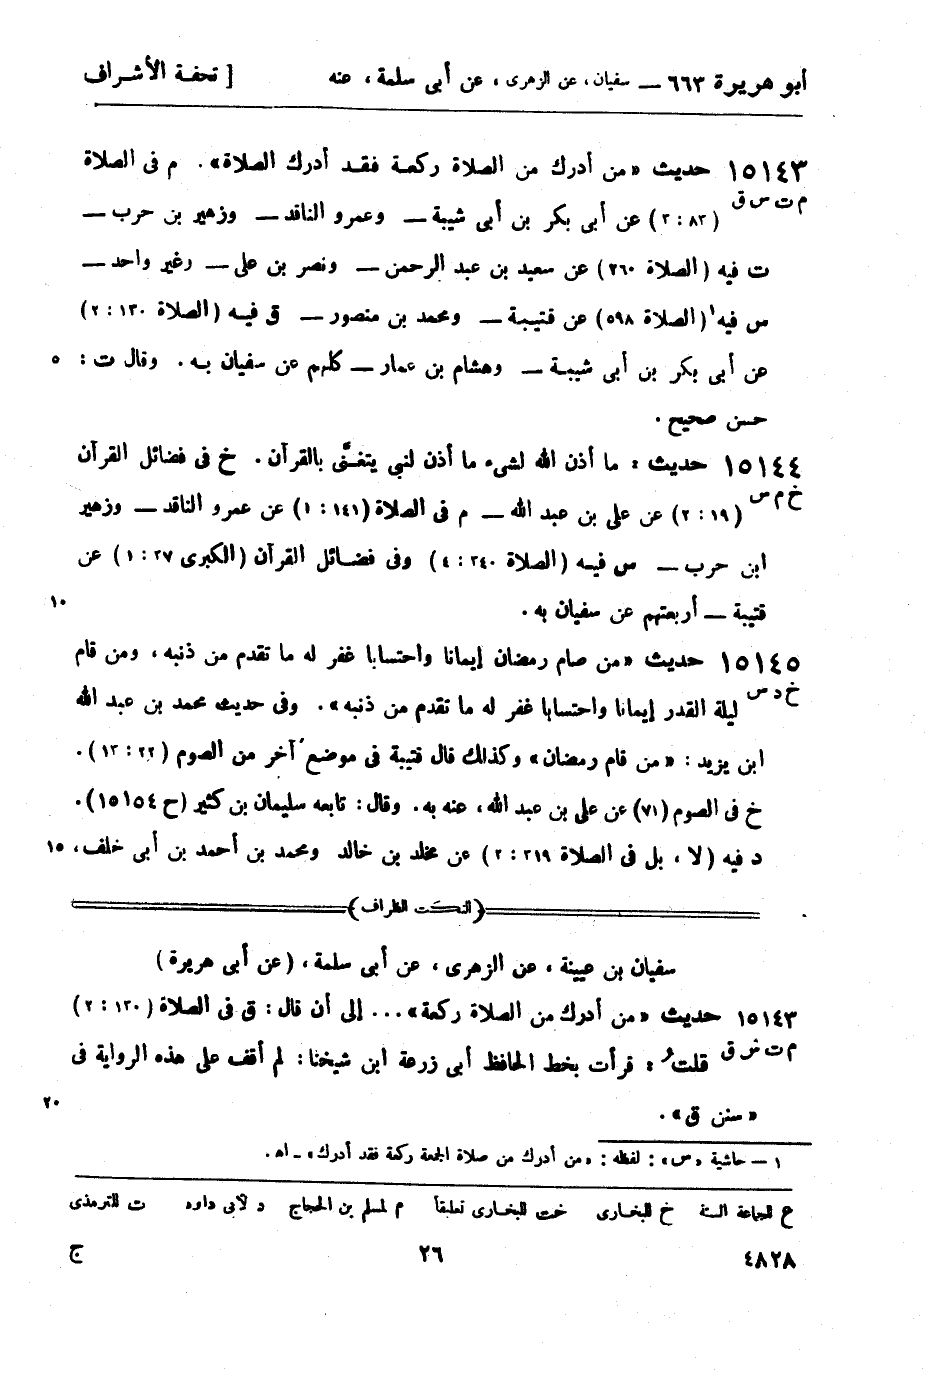 أبو هريرة ٦٦٣ — سفيان، عن الزهرى، عن أبى سلمة، عنه [ تحفة الأشراف
١٥١٤٣ حديث «من أدرك من الصلاة ركعة فقد أدرك الصلاة». م فى الصلاة
م ت س ق (٨٣ : ٢) عن أبى بكر بن أبى شيبة — وعمرو الناقد — وزهير بن حرب —
ت فيه (الصلاة ٢٦٠) عن سعيد بن عبد الرحمن — ونصر بن على — وغير واحد —
س فيه١ (الصلاة ٥٩٨) عن قتيبة — ومحمد بن منصور — ق فيه (الصلاة ١٣٠ : ٢)
عن أبى بكر بن أبى شيبة — وهشام بن عمار — كلهم عن سفيان به. وقال ت : ٥
حسن صحيح.
١٥١٤٤ حديث : ما أذن الله لشىء ما أذن لنبي يتغنَّى بالقرآن. خ فى فضائل القرآن
خ م س (١٩ : ٢) عن على بن عبد الله — م فى الصلاة (١٤١ : ١) عن عمرو الناقد — وزهير
ابن حرب — س فيه (الصلاة ٣٤٠ : ٤) وفى فضائل القرآن (الكبرى ٢٧ : ١) عن
قتيبة — أربعتهم عن سفيان به. ١٠
١٥١٤٥ حديث «من صام رمضان إيمانا واحتسابا غفر له ما تقدم من ذنبه، ومن قام
خ د س ليلة القدر إيمانا واحتسابا غفر له ما تقدم من ذنبه». وفى حديث محمد بن عبد الله
ابن يزيد : «من قام رمضان» وكذلك قال قتيبة فى موضع آخر من الصوم (٢٢ : ١٣).
خ فى الصوم (٧١) عن على بن عبد الله، عنه به. وقال: تابعه سليمان بن كثير (ح ١٥١٥٤).
د فيه (لا، بل فى الصلاة ٣١٩ : ٢) عن مخلد بن خالد ومحمد بن أحمد بن أبى خلف، ١٥
(النكت الظراف)
سفيان بن عيينة، عن الزهرى، عن أبى سلمة، (عن أبى هريرة)
١٥١٤٣ حديث «من أدرك من الصلاة ركعة»... إلى أن قال: ق فى الصلاة (١٣٠ : ٢)
م ت س ق قلت : قرأت بخط الحافظ أبى زرعة ابن شيخنا: لم أقف على هذه الرواية فى
«سنن ق». ٢٠
١ — حاشية «س»: لفظه: «من أدرك من صلاة الجمعة ركعة فقد أدرك» ـ اه.
ع للجماعة الستة خ للبخارى خت للبخارى تعليقاً م لمسلم بن الحجاج د لأبى داود ت للترمذى
٤٨٢٨ ٢٦ ج